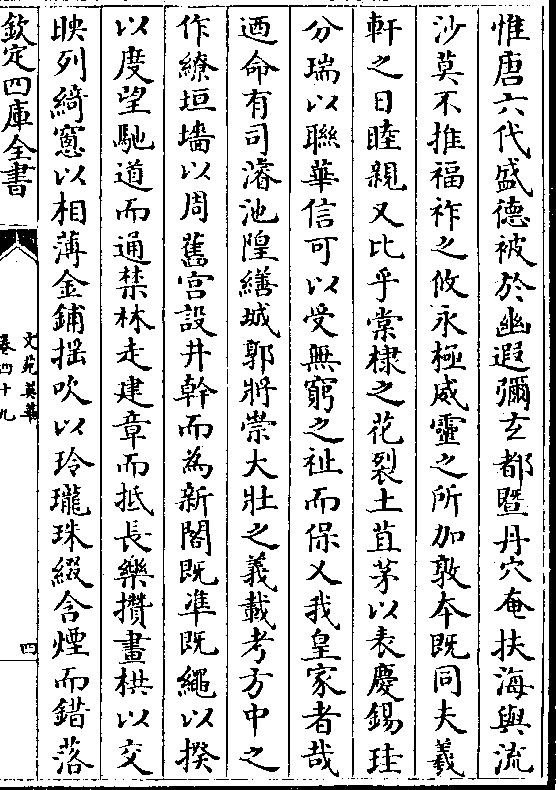 惟唐六代盛德被於幽遐彌玄都暨丹穴奄扶海與流
沙莫不推福祚之攸永極威靈之所加敦本既同夫羲
軒之日睦親又比乎棠棣之花裂土苴茅以表慶錫珪
分瑞以聯華信可以受無窮之祉而保乂我皇家者哉
迺命有司濬池隍繕城郭將崇大壯之義載考方中之
作繚垣墻以周舊宮設井幹而為新閣既準既繩以揆
以度望馳道而通禁林走建章而抵長樂攢畫栱以交
映列綺窻以相薄金鋪揺吹以玲瓏珠綴含煙而錯落
欽定四庫全書
文苑英華
卷四十九
四